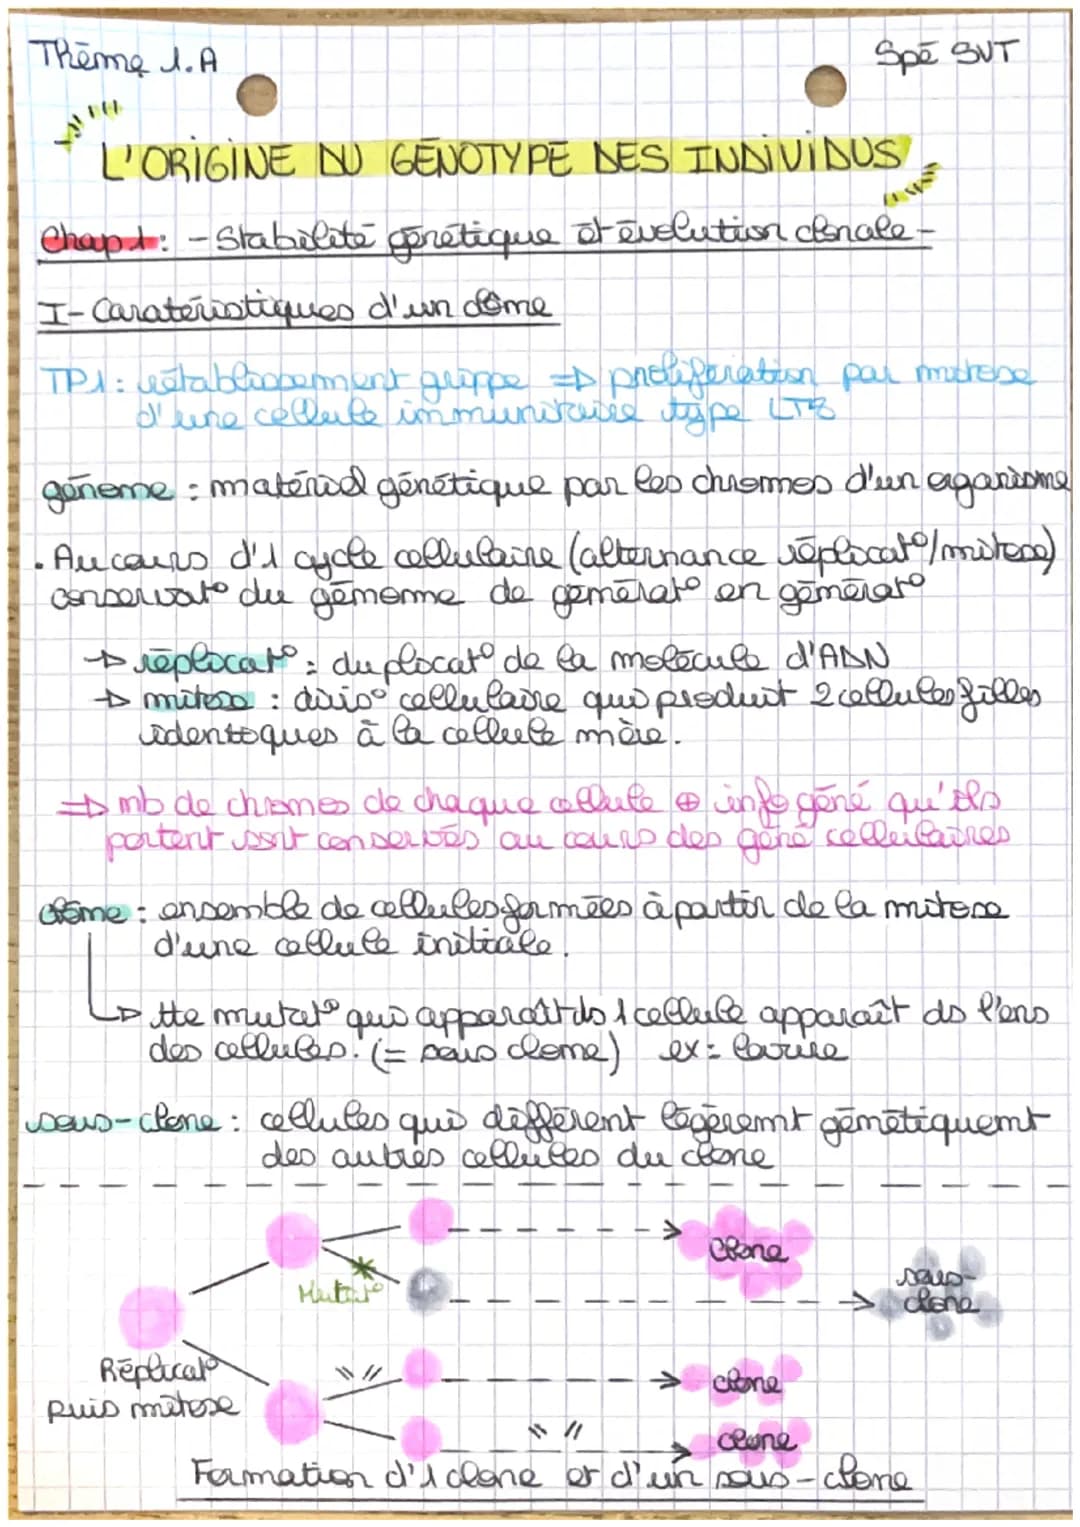 Thème 1.A
Spé SVT
L'ORIGINE DU GÉNOTYPE DES INDIVIDUS
Chap 1: - Stabilité génétique et évolution clonale -
I- Caratéristiques d'un clône
TP1: rétablissement grippe => prolifération par mitose
d'une cellule immunitaire type LT8
génome : matériel génétique par les chromes d'un organisme
. Au cours d'1 cycle cellulaire (alternance réplicat°/mitose)
conservat° du génome de générat° en générat°
→ réplicat° : duplicat° de la molécule d'ADN
→ mitose : divis° cellulaire qui produit 2 cellules filles
identiques à la cellule mère.
=> nb de chromes de chaque cellule ⊕ info géné qu'ils
portent sont conservés au cours des géné cellulaires
clône : ensemble de cellules formées à partir de la mitose
d'une cellule initiale.
↳ tte mutat° qui apparaît ds 1 cellule apparaît ds l'ens
des cellules. (= sous clone) ex: larve
sous-clone : cellules qui diffèrent légèremt génétiquemt
des autres cellules du clone
clone
sous-
clone
Mutat°
Réplicat°
puis mitose
" "
clone
" "
clone
Formation d'1 clone et d'un sous-clone